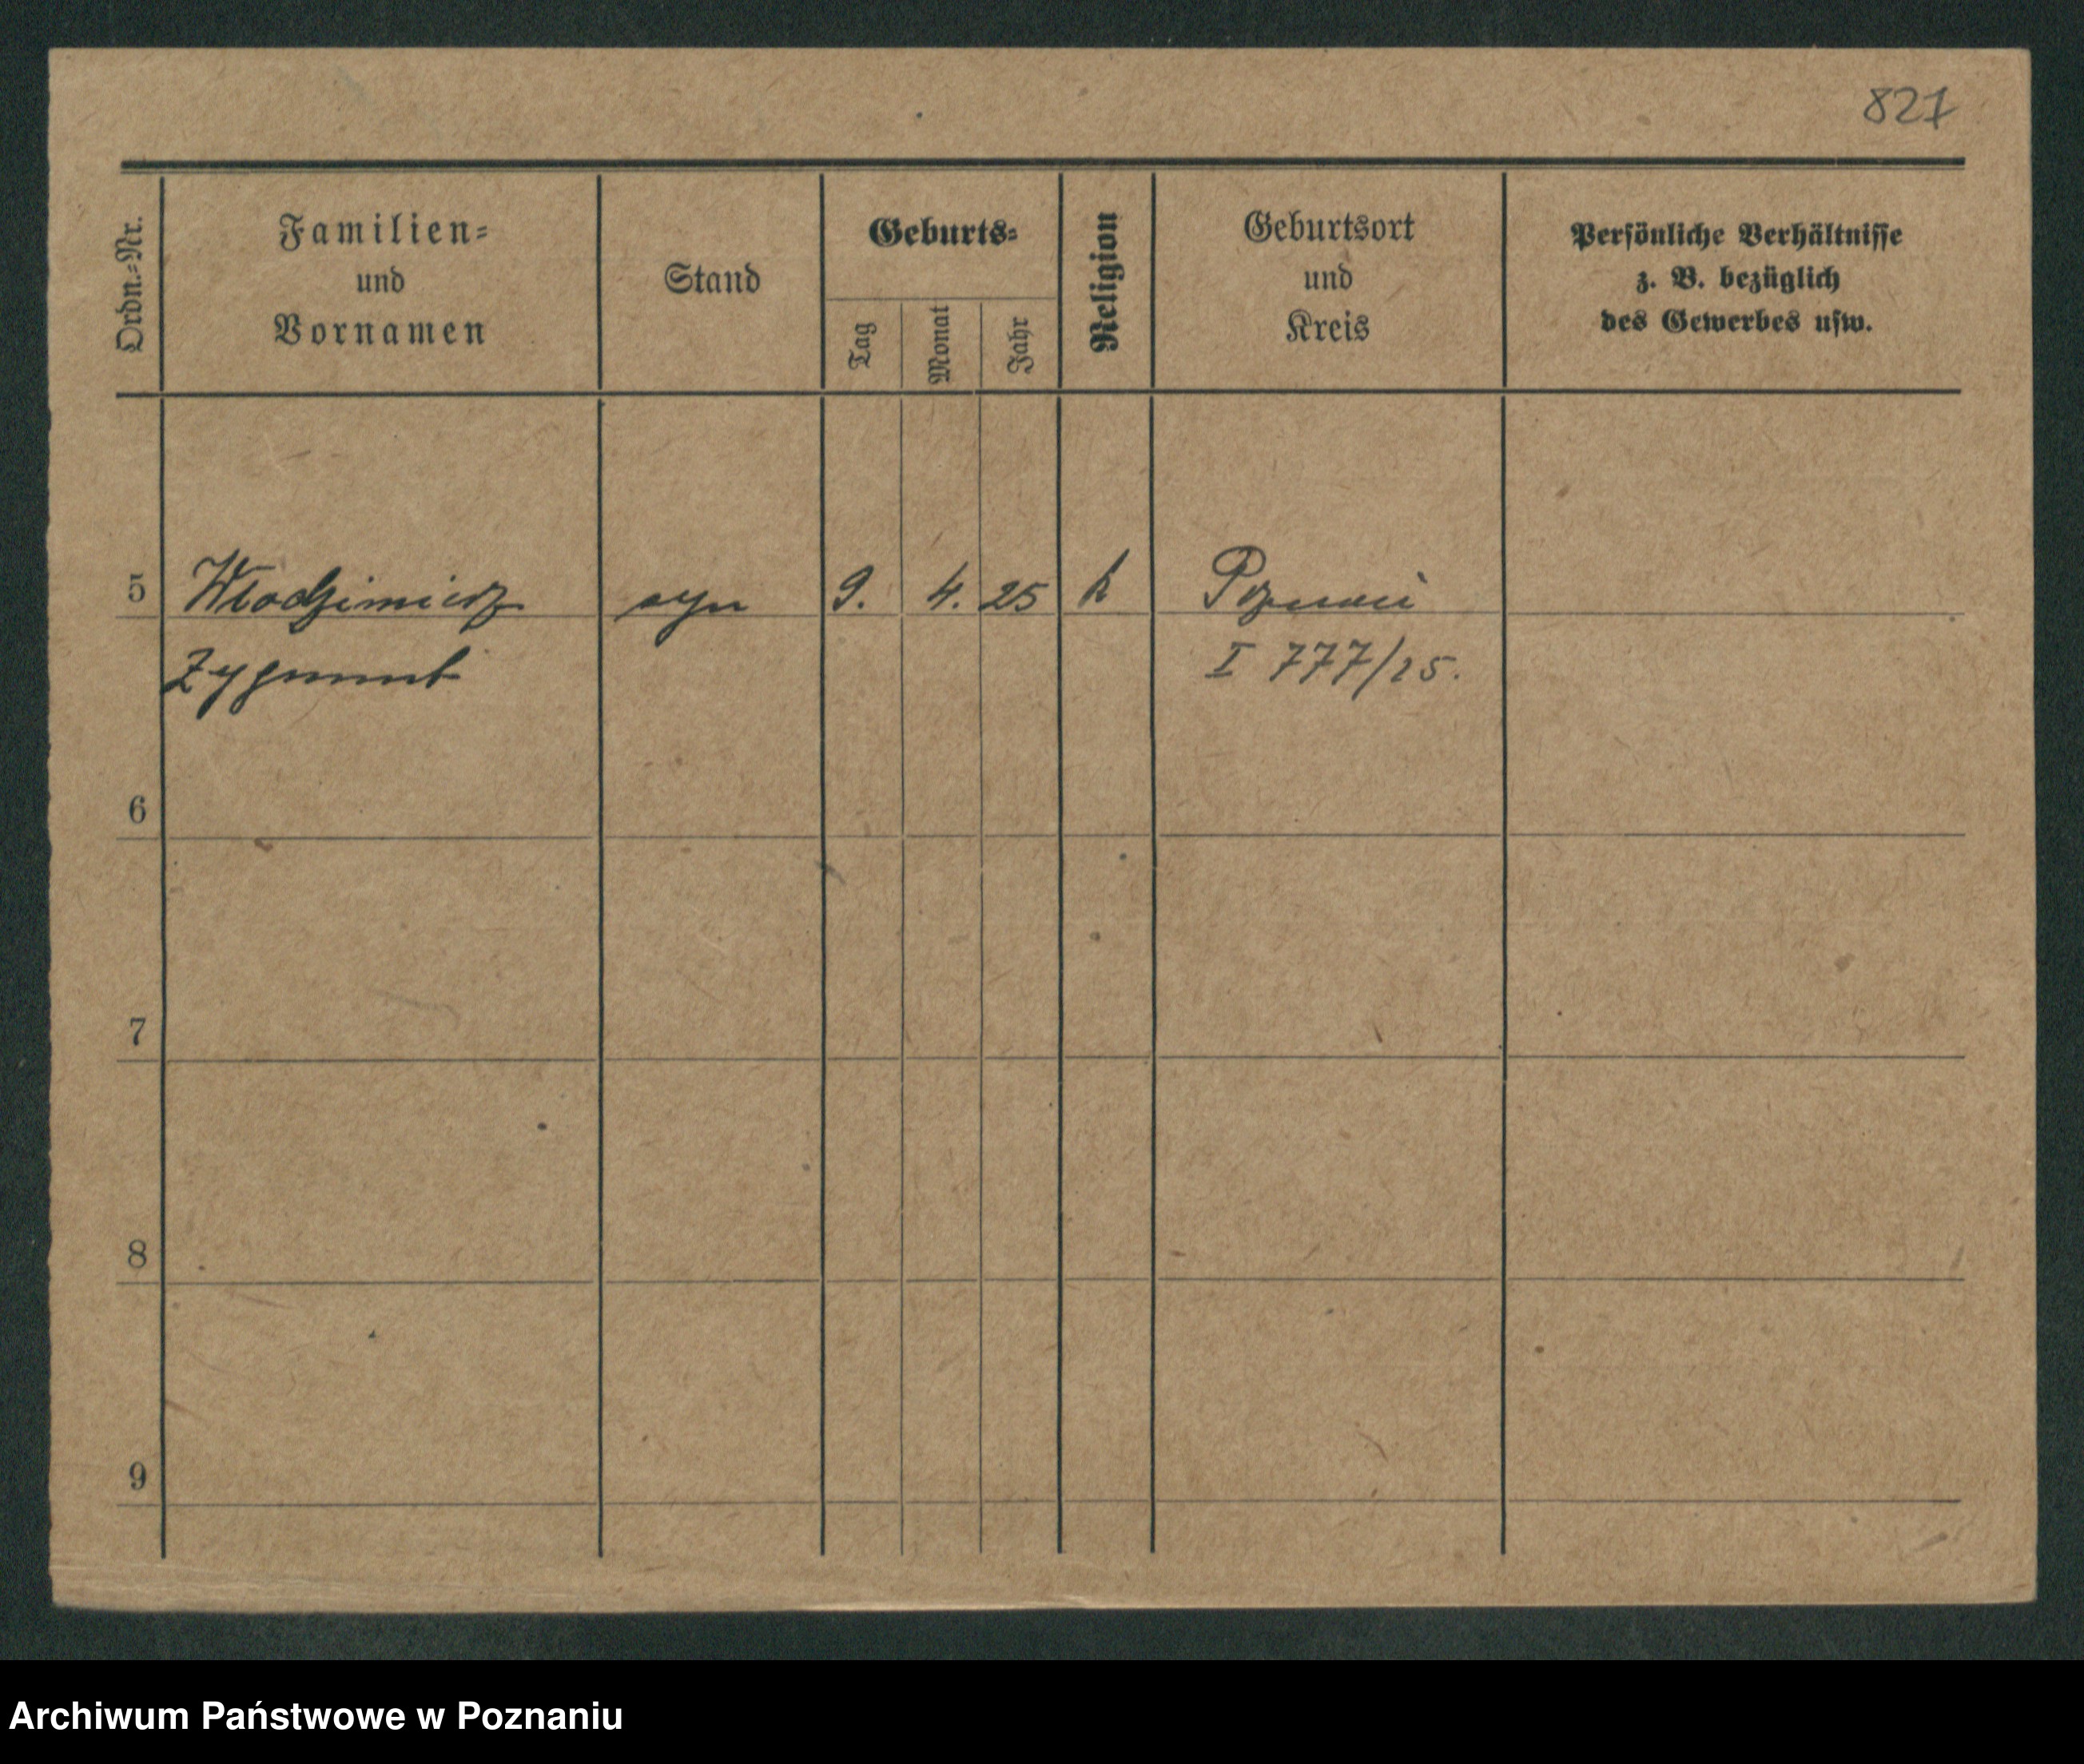 821
Ordn.-Nr.
Familien-
und
Vornamen
Stand
Geburts-
Tag
Monat
Jahr
Religion
Geburtsort
und
Kreis
Persönliche Verhältnisse
z. B. bezüglich
des Gewerbes usw.
5 Włodzimierz syn 9. 4. 25 k Poznań
Zygmunt I 777/25.
6
7
8
9
Archiwum Państwowe w Poznaniu